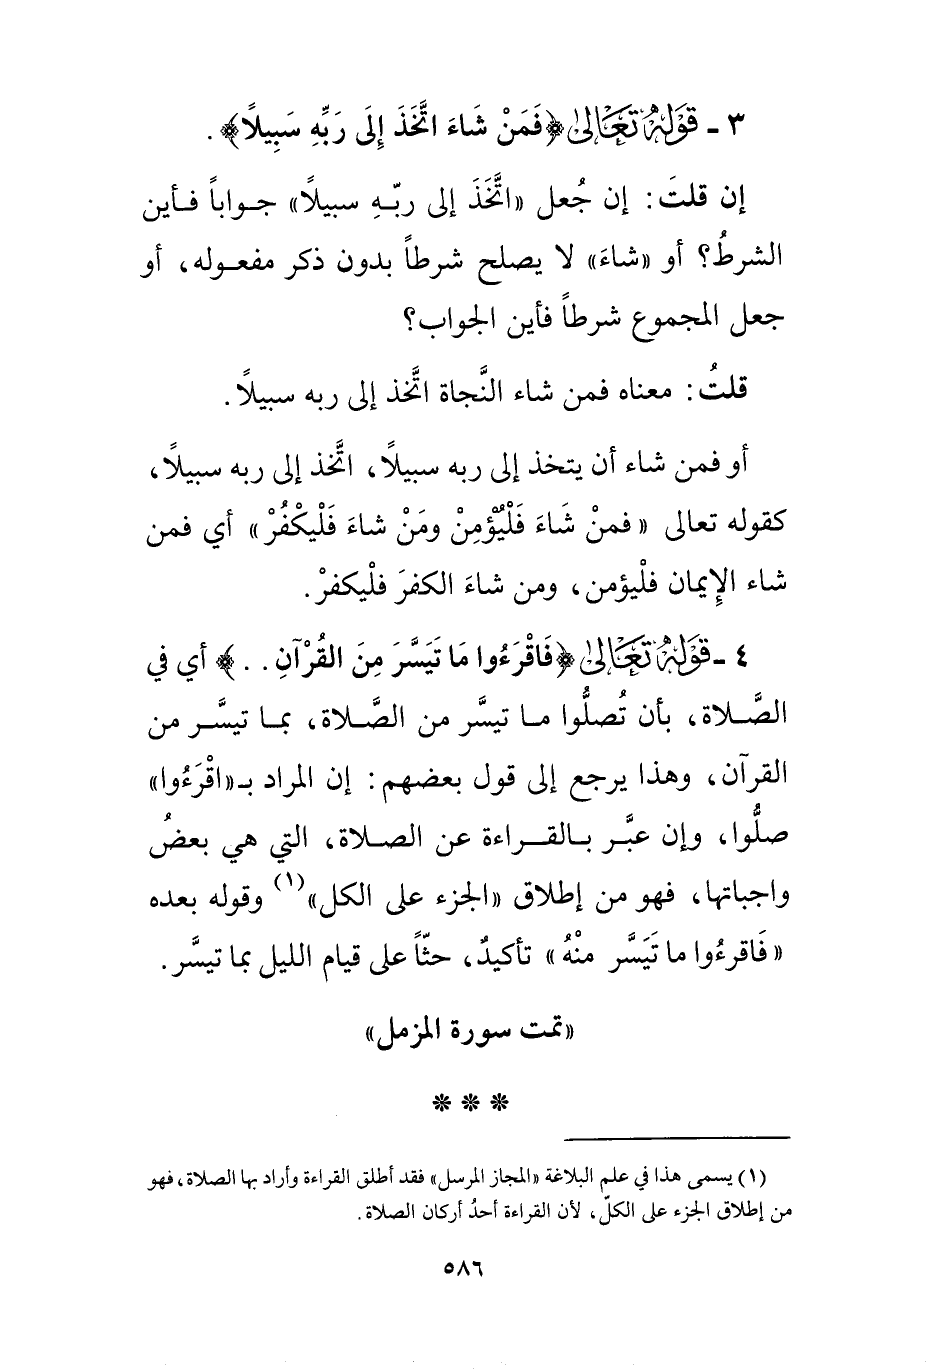 ٣ - قَوْلُهُ تَعَالىٰ ﴿فَمَنْ شَاءَ اتَّخَذَ إِلَى رَبِّهِ سَبِيلاً﴾ .
إن قلتَ: إن جُعل «اتَّخَذَ إلى ربّهِ سبيلاً» جواباً فأين
الشرطُ؟ أو «شاءَ» لا يصلح شرطاً بدون ذكر مفعوله، أو
جعل المجموع شرطاً فأين الجواب؟
قلتُ: معناه فمن شاء النَّجاة اتَّخذ إلى ربه سبيلاً.
أو فمن شاء أن يتخذ إلى ربه سبيلاً، اتَّخذ إلى ربه سبيلاً،
كقوله تعالى «فمنْ شَاءَ فَلْيُؤْمِنْ ومَنْ شاءَ فَلْيكْفُرْ» أي فمن
شاء الإِيمان فلْيؤمن، ومن شاءَ الكفرَ فلْيكفرْ.
٤ - قَوْلُهُ تَعَالىٰ ﴿فَاقْرَءُوا مَا تَيَسَّرَ مِنَ القُرْآنِ . . ﴾ أي في
الصَّلاة، بأن تُصلُّوا ما تيسَّر من الصَّلاة، بما تيسَّر من
القرآن، وهذا يرجع إلى قول بعضهم: إن المراد بـ«اقْرَءُوا»
صلُّوا، وإن عبَّر بالقراءة عن الصلاة، التي هي بعضُ
واجباتها، فهو من إطلاق «الجزء على الكل»(١) وقوله بعده
«فَاقرءُوا ما تَيَسَّر منْهُ» تأكيدٌ، حثّاً على قيام الليل بما تيسَّر.
«تمت سورة المزمل»
* * *
(١) يسمى هذا في علم البلاغة «المجاز المرسل» فقد أطلق القراءة وأراد بها الصلاة، فهو
من إطلاق الجزء على الكلّ، لأن القراءة أحدُ أركان الصلاة.
٥٨٦